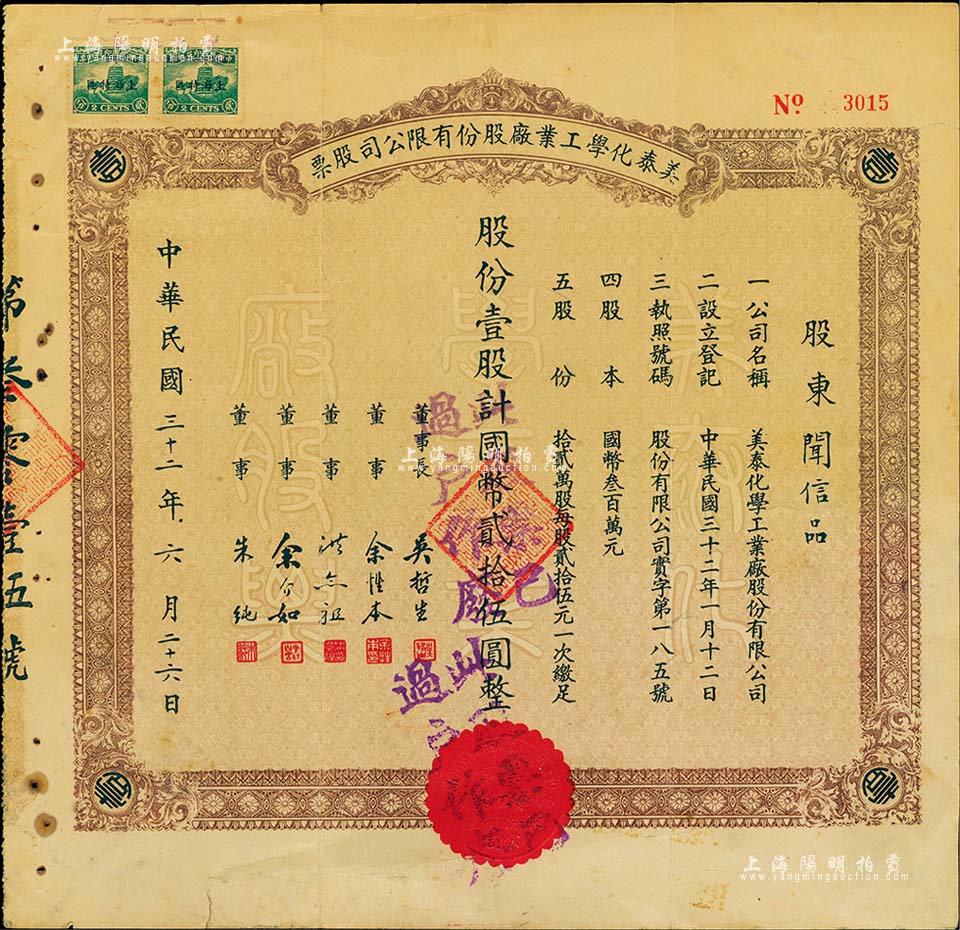 上海陽明拍賣
www.yangmingauction.com
2 CENTS
2 CENTS
No 3015
美泰化學工業廠股份有限公司股票
股東 聞信品
一公司名稱 美泰化學工業廠股份有限公司
二設立登記 中華民國三十二年一月十二日
三執照號碼 股份有限公司實字第一八五號
四股本 國幣叁百萬元
五股份 拾貳萬股每股貳拾伍元一次繳足
股份壹股計國幣貳拾伍圓整
董事長 吳哲生
董事 余性本
董事 洪 祖
董事 余介如
董事 朱純
中華民國三十二年六月二十六日
第叁零壹伍號
過戶
作廢
過
上海陽明拍賣
www.yangmingauction.com
上海陽明拍賣
www.yangmingauction.com